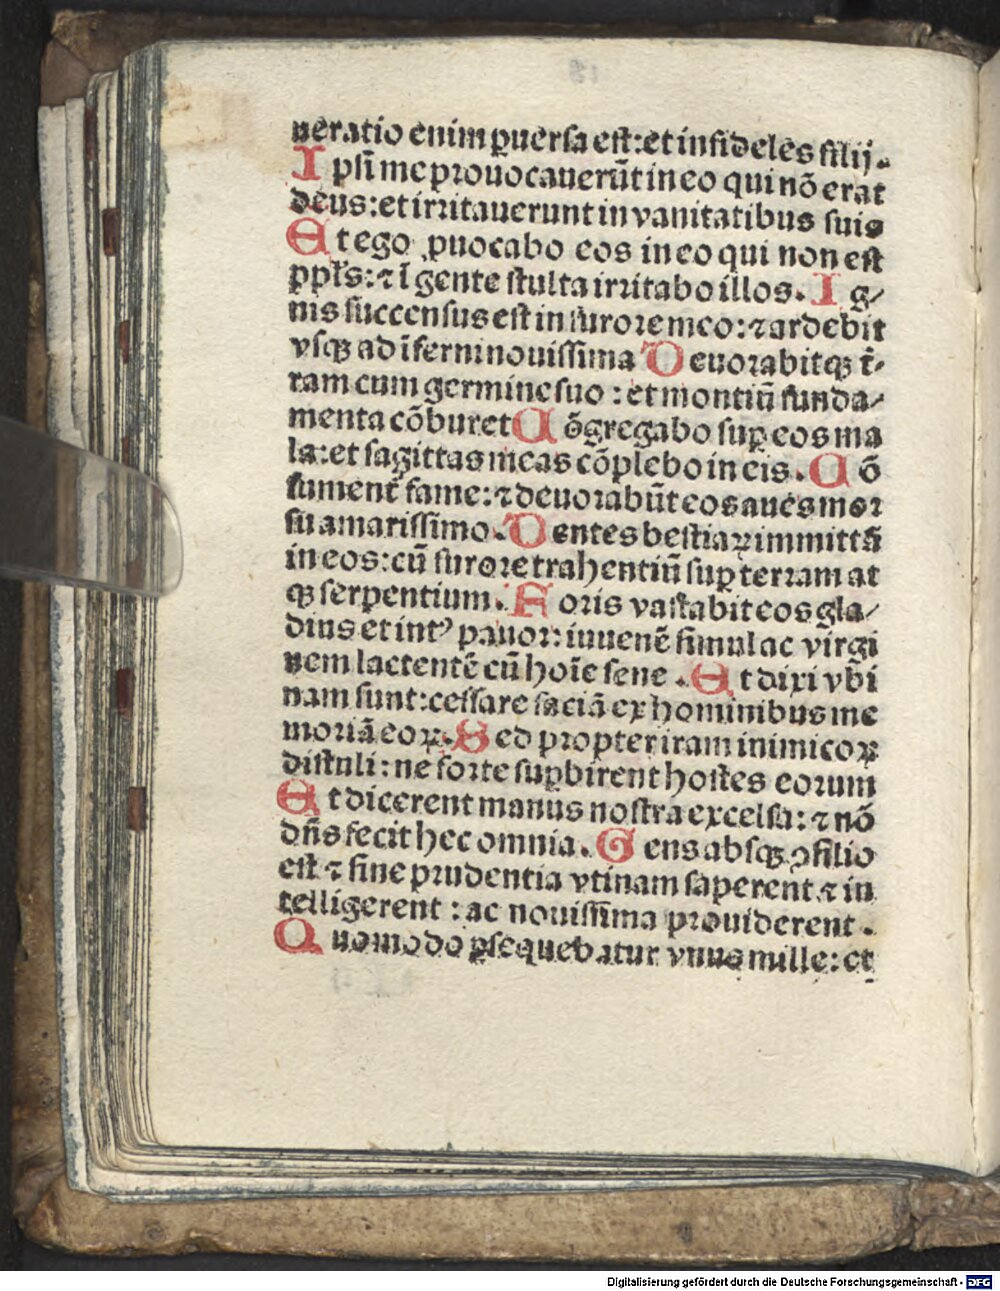 neratio enim ꝑuersa est: et infideles filij.
Ipsi me prouocauerūt in eo qui nō erat
deus: et irritauerunt in vanitatibus suis
Et ego ꝓuocabo eos in eo qui non est
ppl's: ⁊ ī gente stulta irritabo illos. Ig⸗
nis succensus est in furore meo: ⁊ ardebit
vsqꝫ ad īferni nouissima Deuorabitqꝫ t̄⸗
ram cum germine suo: et montiū funda⸗
menta cōburet Cōgregabo suꝑ eos ma
la: et sagittas meas cōplebo in eis. Cō
sument̄ fame: ⁊ deuorabūt eos aues mor
su amarissimo. Dentes bestiaꝝ immittā
in eos: cū furore trahentiū suꝑ terram at
qꝫ serpentium. Foris vastabit eos gla⸗
dius et int᾽ pauor: iuuenē simul ac virgi
nem lactentē cū hoīe sene. Et dixi vbi
nam sunt: cessare faciā ex hominibus me
moriā eoꝝ. Sed propter iram inimicoꝝ
distuli: ne forte suꝑbirent hostes eorum
Et dicerent manus nostra excelsa: ⁊ nō
dn̄s fecit hec omnia. Gens absqꝫ ꝯsilio
est ⁊ sine prudentia vtinam saperent ⁊ in
telligerent: ac nouissima prouiderent.
Quomodo ꝑsequebatur vnus mille: et
Digitalisierung gefördert durch die Deutsche Forschungsgemeinschaft - DFG